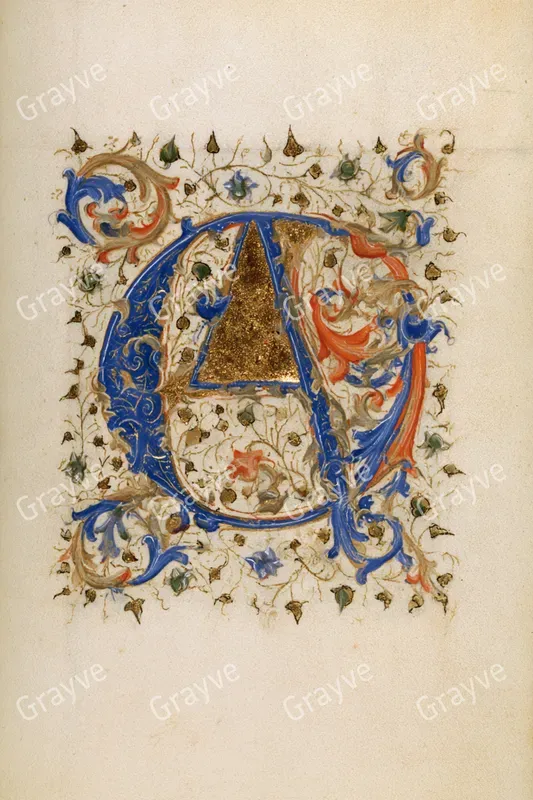 Grayve Grayve Grayve Grayve
Grayve Grayve Grayve Grayve
A
Grayve Grayve Grayve Grayve
Grayve Grayve Grayve Grayve